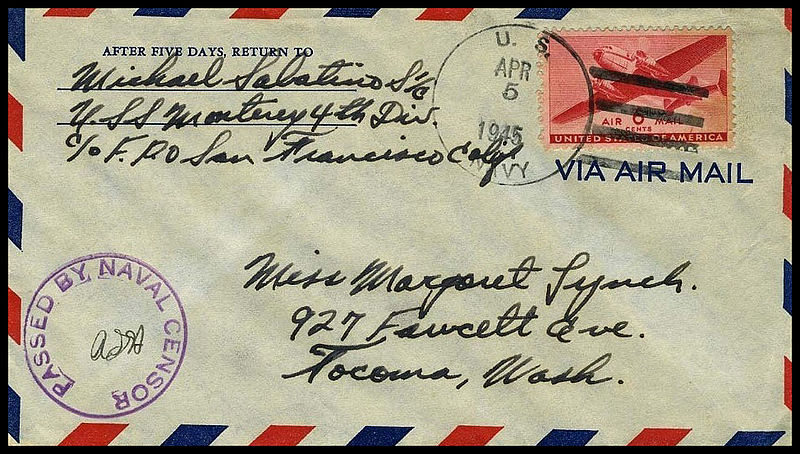 AFTER FIVE DAYS, RETURN TO
Michael Sabatino S1/c
U.S.S. Monterey 4th Div.
c/o F.P.O San Francisco Calif
U. S.
APR
5
1945
NAVY
AIR 6 MAIL
CENTS
UNITED STATES OF AMERICA
VIA AIR MAIL
Miss Margaret Lynch.
927 Fawcett Ave.
Tacoma, Wash.
PASSED BY NAVAL CENSOR